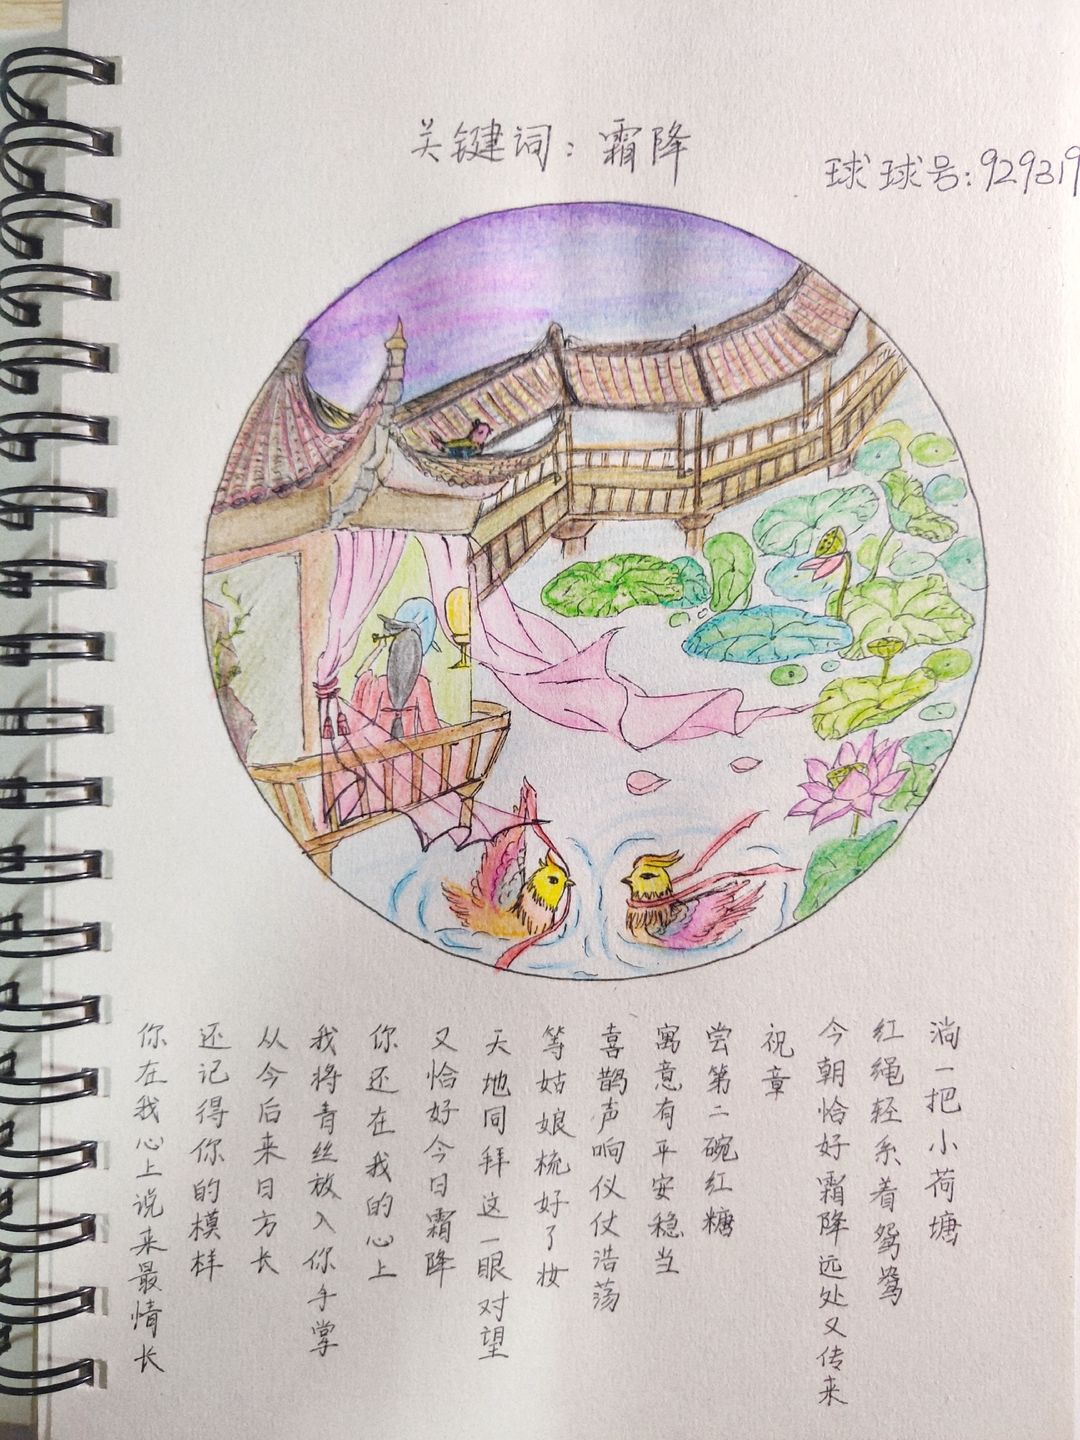 关键词：霜降
球球号：929319
淌一把小荷塘
红绳轻系着鸳鸯
今朝恰好霜降远处又传来
祝章
尝第二碗红糖
寓意有平安稳当
喜鹊声响仪仗浩荡
等姑娘梳好了妆
天地同拜这一眼对望
又恰好今日霜降
你还在我的心上
我将青丝放入你手掌
从今后来日方长
还记得你的模样
你在我心上说来最情长